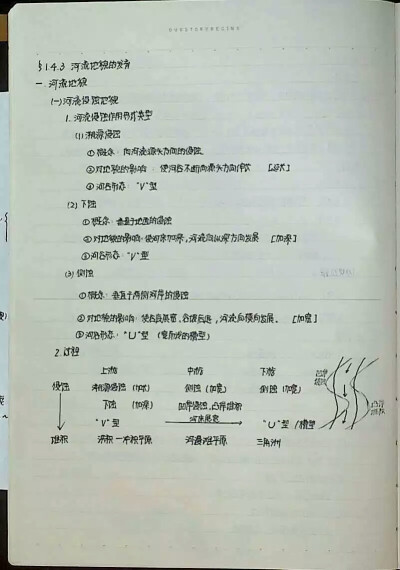 §1.4.3 河流地貌的发育
一. 河流地貌
(一) 河流侵蚀地貌
1. 河流侵蚀作用形式类型
(1) 溯源侵蚀
① 概念：向河流源头方向的侵蚀
② 对地貌的影响：使河谷不断向源头方向伸长 [延长]
③ 河谷形态："V"型
(2) 下蚀
① 概念：垂直于地面的侵蚀
② 对地貌的影响：使河床加深，河流向纵深方向发展 [加深]
③ 河谷形态："V"型
(3) 侧蚀
① 概念：垂直于两侧河岸的侵蚀
② 对地貌的影响：使谷底展宽、谷坡后退，河流向横向发展。 [加宽]
③ 河谷形态："U"型（宽而浅的槽型）
2. 过程
上游 中游 下游
侵蚀 溯源侵蚀 侧蚀（加宽） 侧蚀（加宽）
下蚀（加深） 凹岸侵蚀，凸岸堆积
河床展宽
"V"型 "U"型/槽型
堆积 洪积—冲积平原 河漫滩平原 三角洲
凹岸
侵蚀
凸岸
堆积